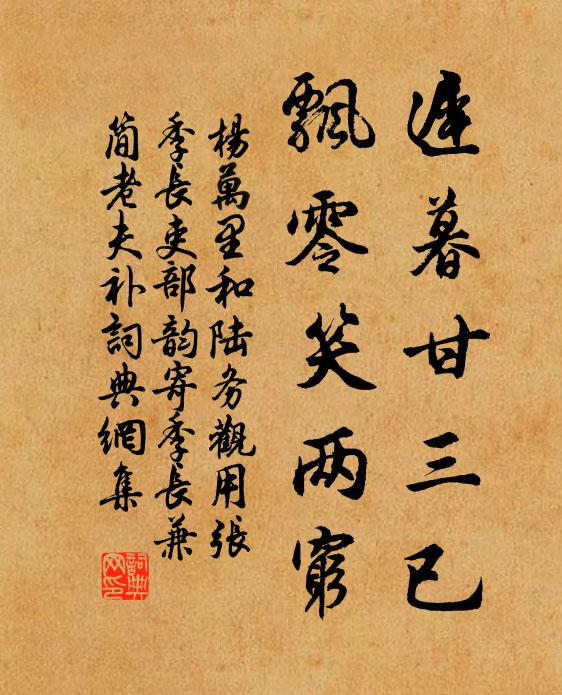 遲暮甘三已
飄零笑兩窮
楊萬里和陆务觀用張
季長吏部韵寄季長兼
简老夫补詞典網集
詞典
网印